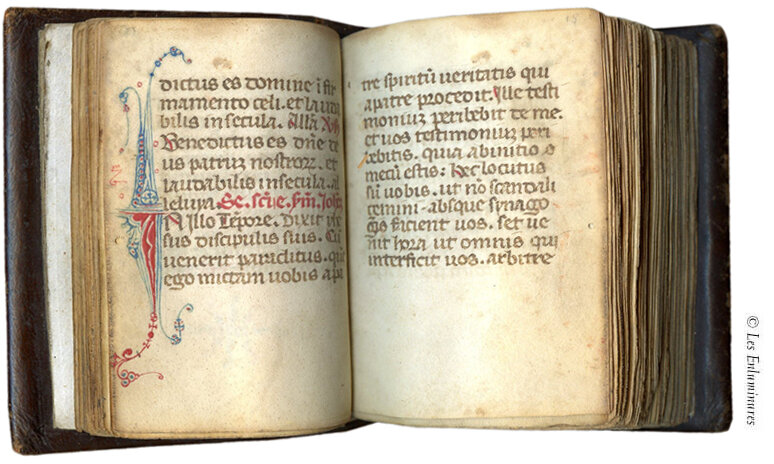 dictus es domine ī fir
mamento celi. et lauda
bilis in secula. Allā
Benedictus es dñe de
us patrum nostrorz. et
laudabilis in secula. al
leluya. Sc. scīe. sm̄. Joh
N illo Tēpore. Dixit ihe
sus discipulis suis. Cū
venerit paraclitus. que
ego mictam uobis a pa
tre spiritū ueritatis qui
a patre procedit. Ille testi
monium peribebit de me.
et uos testimonium peri
bebitis. quia ab initio
mecū estis: Hec locutus
sū uobis. ut nō scandali
cemini. absque synago
gis facient uos. set ue
nit hora ut omnis qui
interficit uos. arbitre
© Les Enluminures